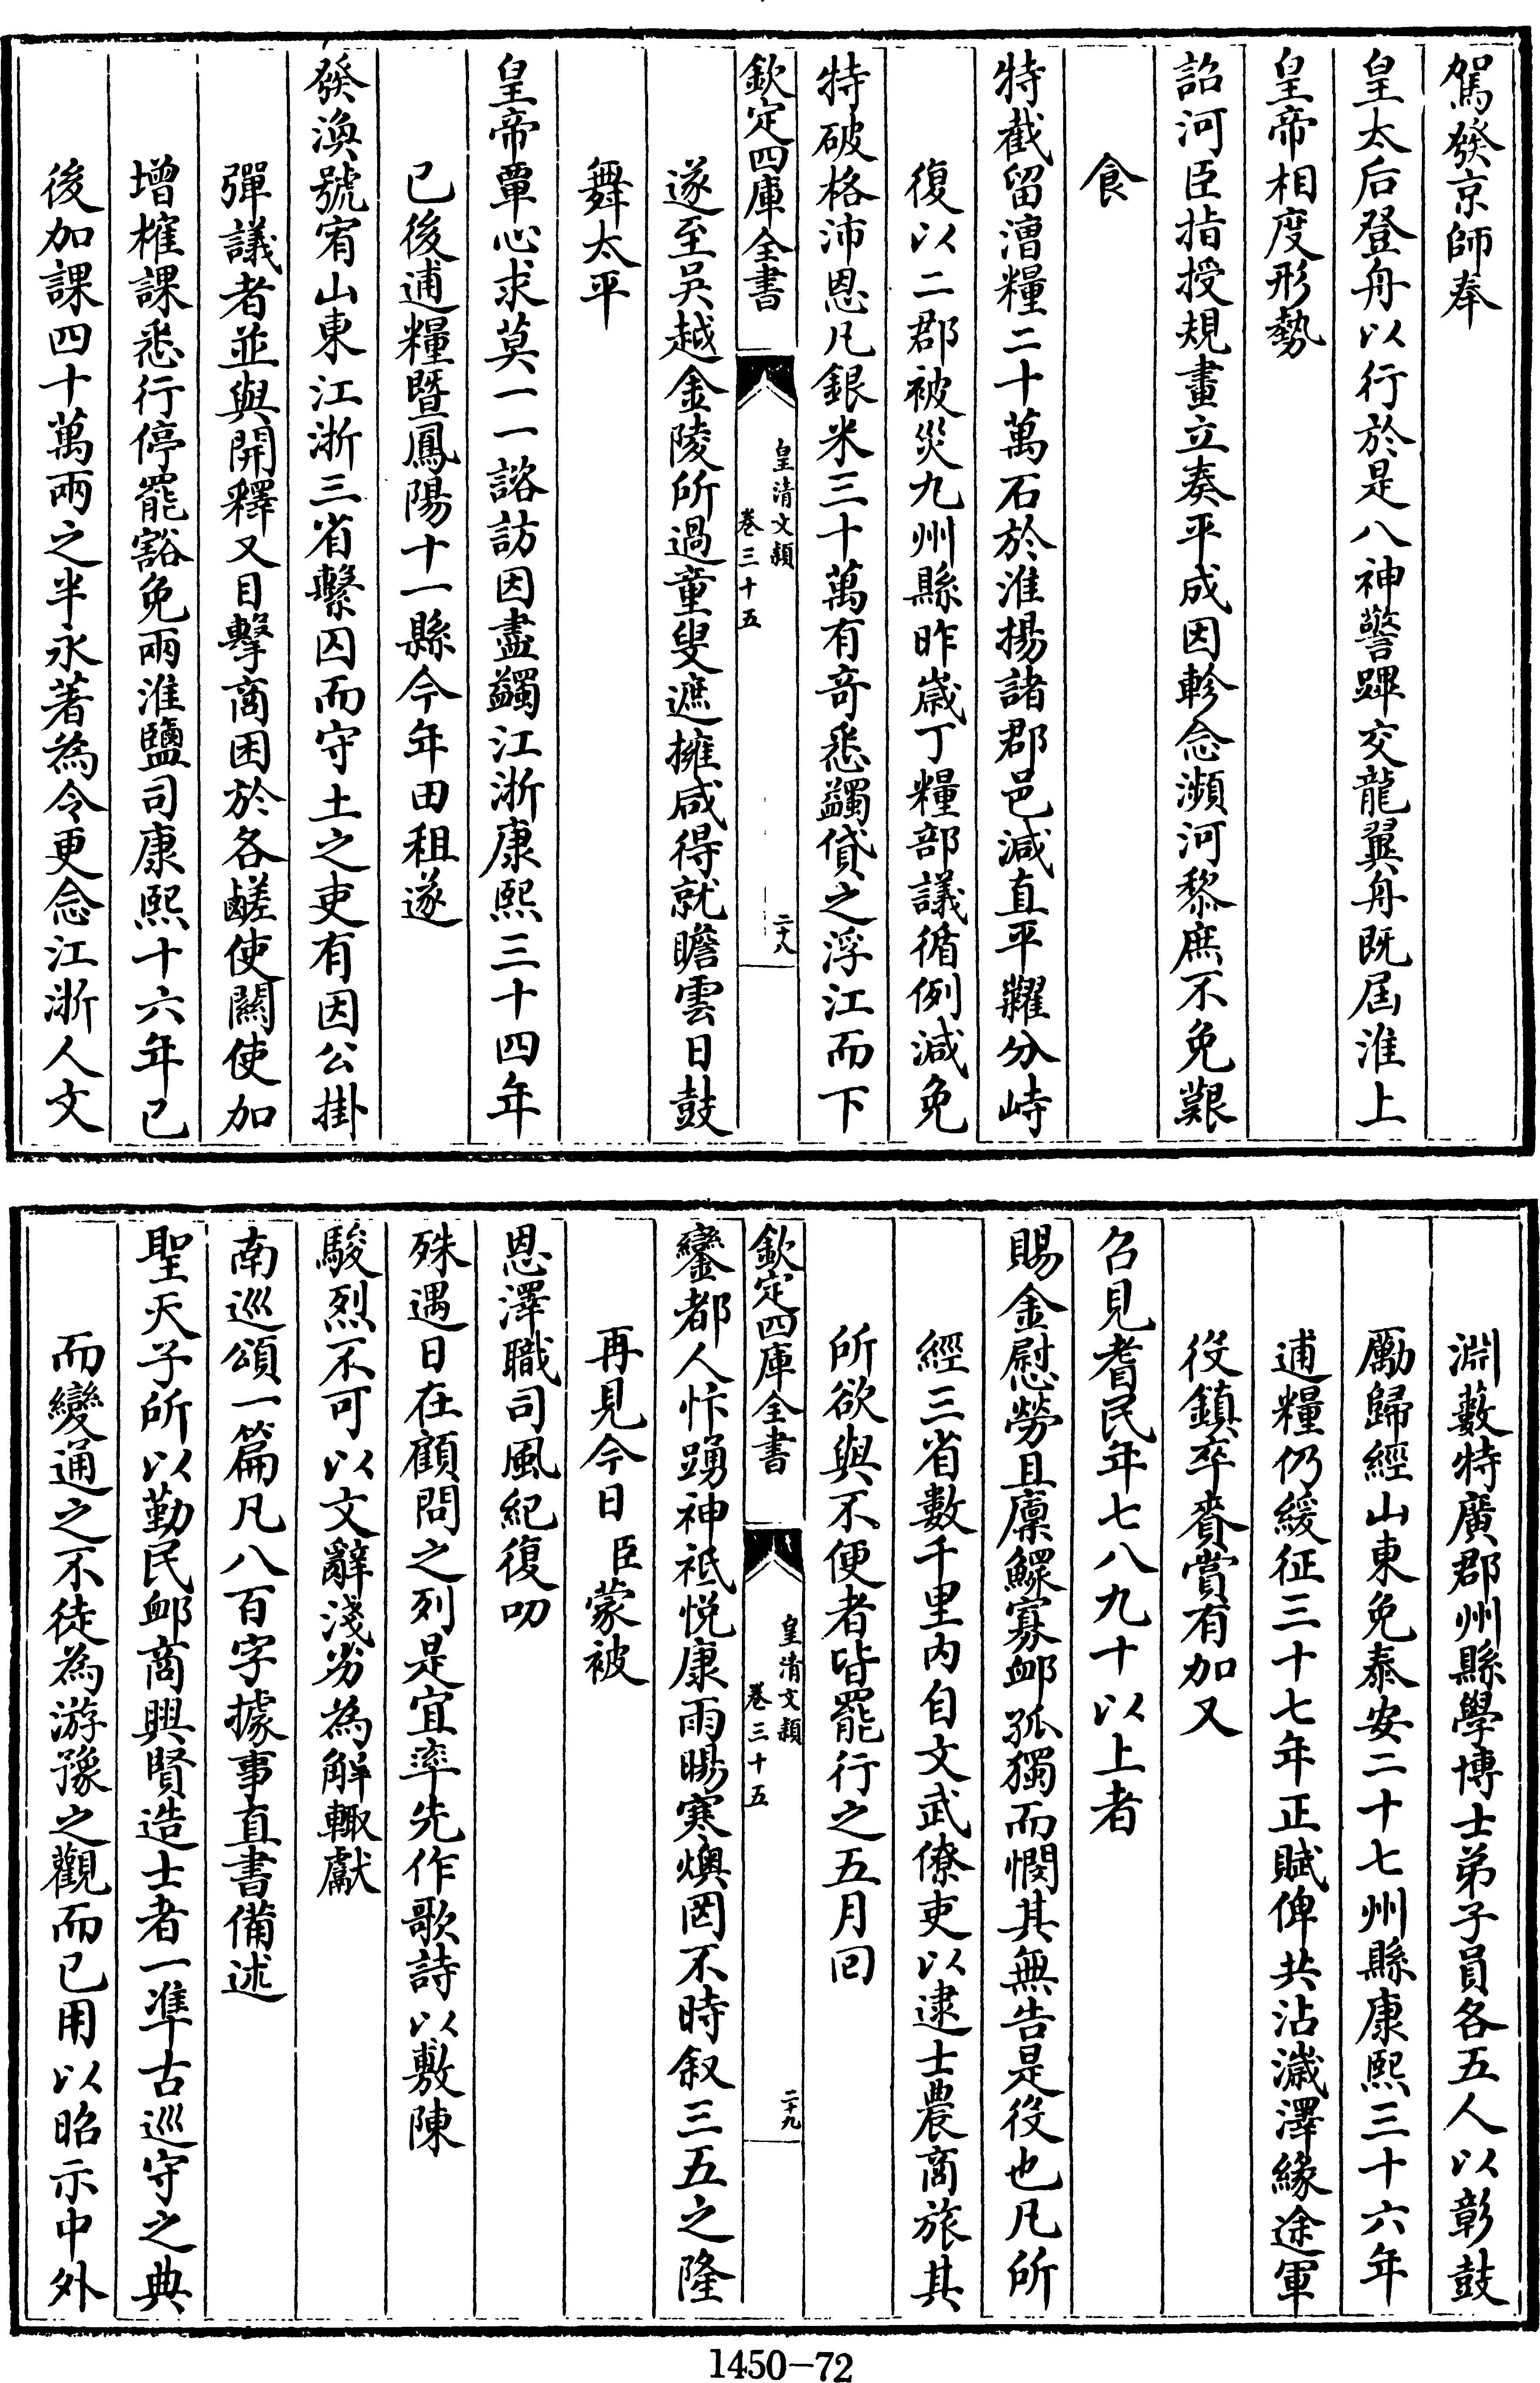 駕發京師奉
皇太后登舟以行於是八神警蹕交龍翼舟既屆淮上
皇帝相度形勢
詔河臣指授規畫立奏平成因軫念瀕河黎庶不免艱
食
特截留漕糧二十萬石於淮揚諸郡邑減直平糶分峙
復以二郡被災九州縣昨歲丁糧部議循例減免
特破格沛恩凡銀米三十萬有奇悉蠲貸之浮江而下
欽定四庫全書
皇清文穎
卷三十五
二十八
遂至吳越金陵所過童叟遮擁咸得就瞻雲日鼓
舞太平
皇帝覃心求莫一一諮訪因盡蠲江浙康熙三十四年
已後逋糧暨鳳陽十一縣今年田租遂
發渙號宥山東江浙三省繫囚而守土之吏有因公掛
彈議者並與開釋又目擊商困於各鹺使關使加
增榷課悉行停罷豁免兩淮鹽司康熙十六年已
後加課四十萬兩之半永著為令更念江浙人文
淵藪特廣郡州縣學博士弟子員各五人以彰鼓
勵歸經山東免泰安二十七州縣康熙三十六年
逋糧仍緩征三十七年正賦俾共沾濊澤緣途軍
役鎮卒賚賞有加又
召見耆民年七八九十以上者
賜金慰勞且廪鰥寡䘏孤獨而憫其無告是役也凡所
經三省數千里內自文武僚吏以逮士農商旅其
所欲與不便者皆罷行之五月回
欽定四庫全書
皇清文穎
卷三十五
二十九
鑾都人忭踴神祗悅康雨暘寒燠罔不時叙三五之隆
再見今日臣蒙被
恩澤職司風紀復叨
殊遇日在顧問之列是宜率先作歌詩以敷陳
駿烈不可以文辭淺劣為解輙獻
南巡頌一篇凡八百字據事直書備述
聖天子所以勤民䘏商興賢造士者一準古巡守之典
而變通之不徒為游豫之觀而已用以昭示中外
1450-72